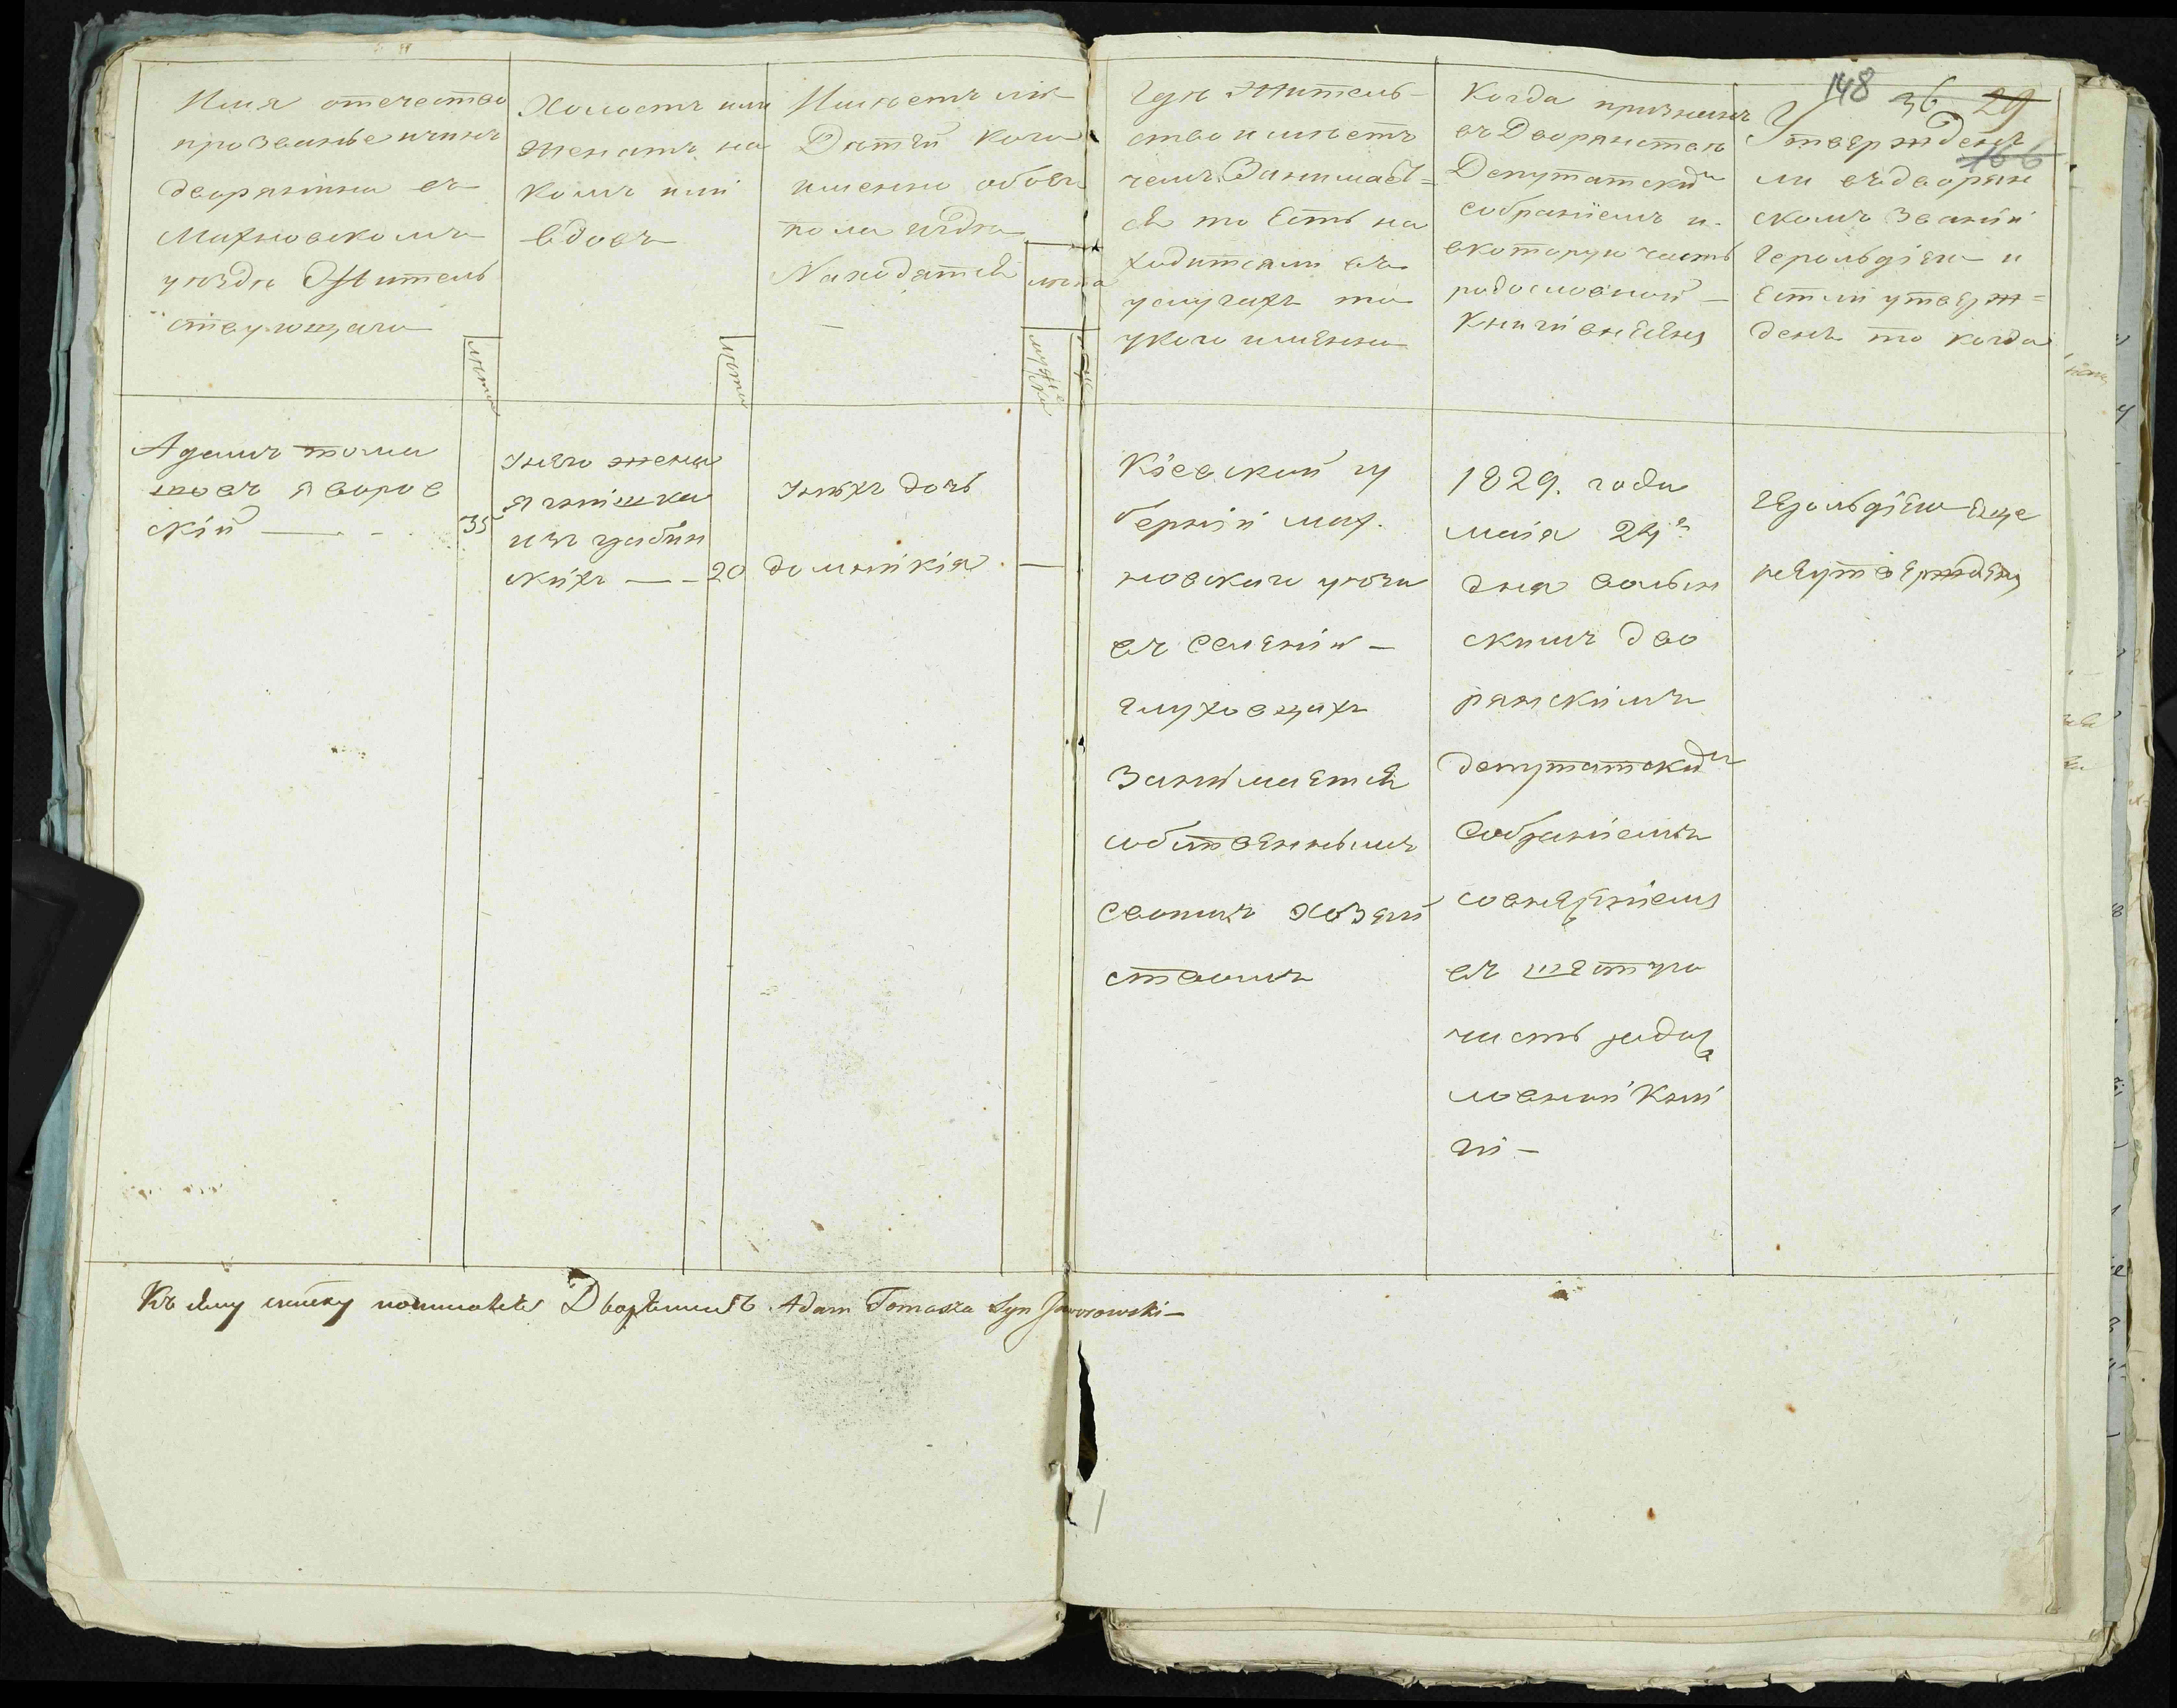 148 36 29
166
Имя отечество
прозванье и чинъ
дворянина въ
Махновскомъ
уѣздѣ Жытель
ствующаго
лѣта
Холостъ или
женатъ на
комъ или
вдовъ
лѣта
Имѣетъ ли
Дѣтей кого
именно обоего
пола и гдѣ
Находятся
лѣта
мужска
Гдѣ жытель-
ство имѣетъ
чемъ Занимает=
ся то Есть на
ходится ли въ
услугахъ то
укого именно
Когда признанъ
въ Дворянствѣ
Депутатскимъ
собраніемъ и
вкоторую часть
родословной
Книги внесенъ
Утвержденъ
ли въ дворян
скомъ Званіи
Герольдіею и
Естли утверж=
денъ то когда
Адамъ тома
шовъ яворов
скій — 35
Унего жена
Ягнѣшка
изъ грабин
скихъ — 20
Унихъ дочь
домникія —
Кіевской гу
берніи мах
новскаго уезда
въ Селеніи —
глуховцахъ
Занимается
собственнымъ
Своимъ Хозяй
ствомъ
1829. года
маія 24г
дня волын
скимъ дво
рянскимъ
депутатскимъ
Собраніемъ
совнесеніемъ
въ шестую
часть родос
ловной Кни
ги —
герольдіею Еще
неутвержденъ
Къ сему списку подписался Дворянинъ Adam Tomasza Syn Jaworowski —